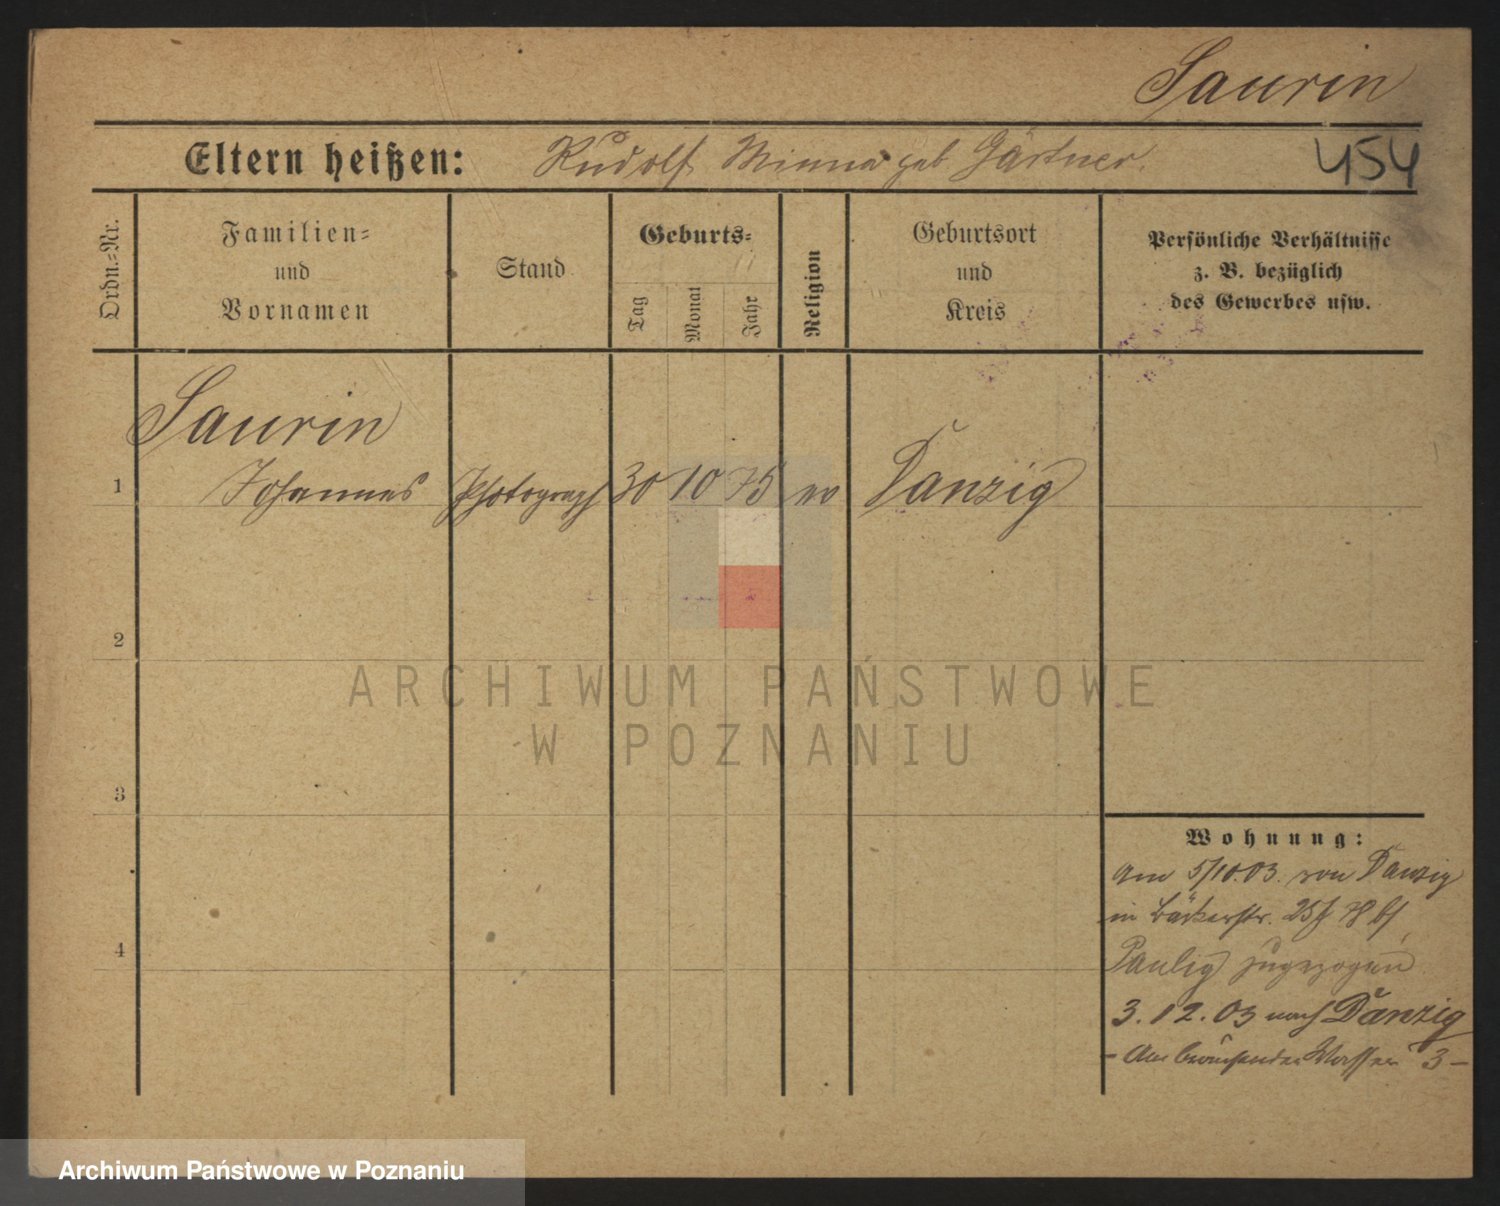 Saurin
Eltern heißen: Rudolf Minna geb Gärtner.
454
Ordn.-Nr.
Familien-
und
Vornamen
Stand
Geburts-
Tag
Monat
Jahr
Religion
Geburtsort
und
Kreis
Persönliche Verhältnisse
z. B. bezüglich
des Gewerbes usw.
Saurin
1 Johannes Photograph 30 10 75 ev Danzig
2
3
4
Wohnung:
am 5/10.03. von Danzig
in Bäckerstr. 25
Paulig zugezogen
3.12.03 nach Danzig
- Am brausenden Wasser 3 -
ARCHIWUM PAŃSTWOWE
W POZNANIU
Archiwum Państwowe w Poznaniu